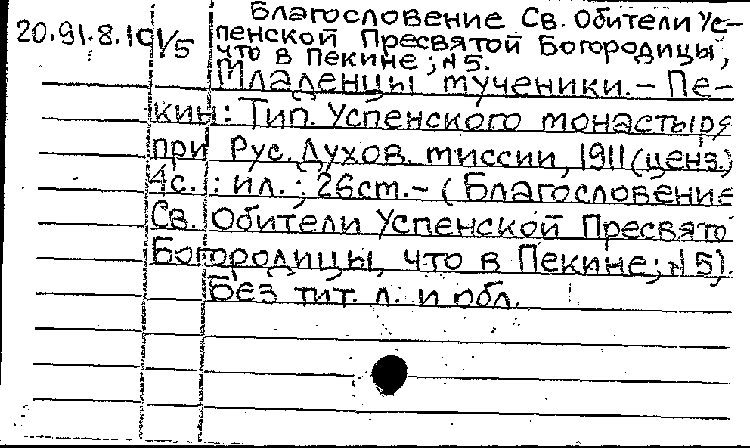 Благословение Св. Обители Ус-
20.91.8.10 1/5 пенской Пресвятой Богородицы,
что в Пекине; №5.
Младенцы мученики. – Пе-
кин: Тип. Успенского монастыря
при Рус. Духов. миссии, 1911 (ценз.)
4с. : ил. ; 26см. – (Благословение
Св. Обители Успенской Пресвято
Богородицы, что в Пекине; №5).
Без тит. л. и обл.